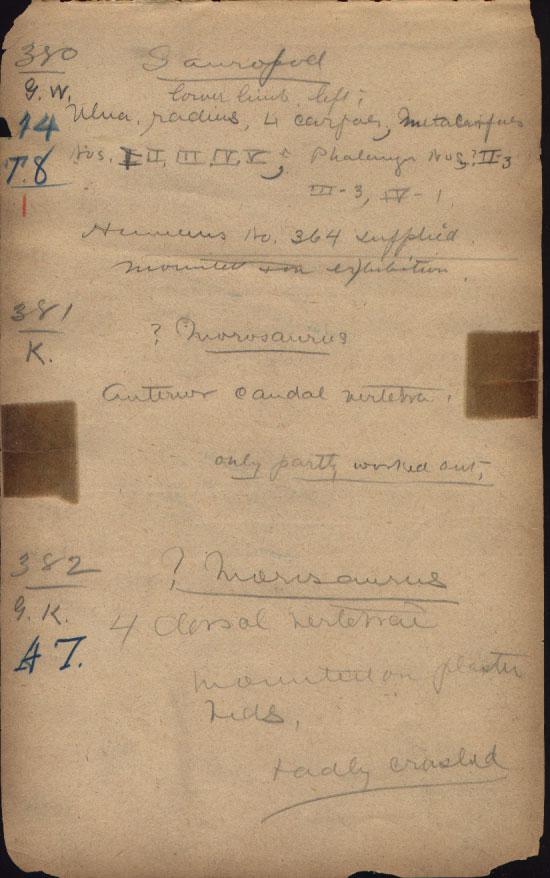 380
Sauropod
G. W.
lower limb left;
14
Ulna, radius, 4 carpals, Metacarpals
T.8
Nos. I II, III, IV, V; Phalanges Nos? II-3
1
III-3, IV-1.
Humerus No. 364 supplied.
mounted on exhibition.
381
? Morosaurus
K.
Anterior caudal vertebra.
only partly worked out,
382
? Morosaurus
G. K.
4 dorsal vertebrae
A 7.
mounted on plaster
beds,
badly crushed